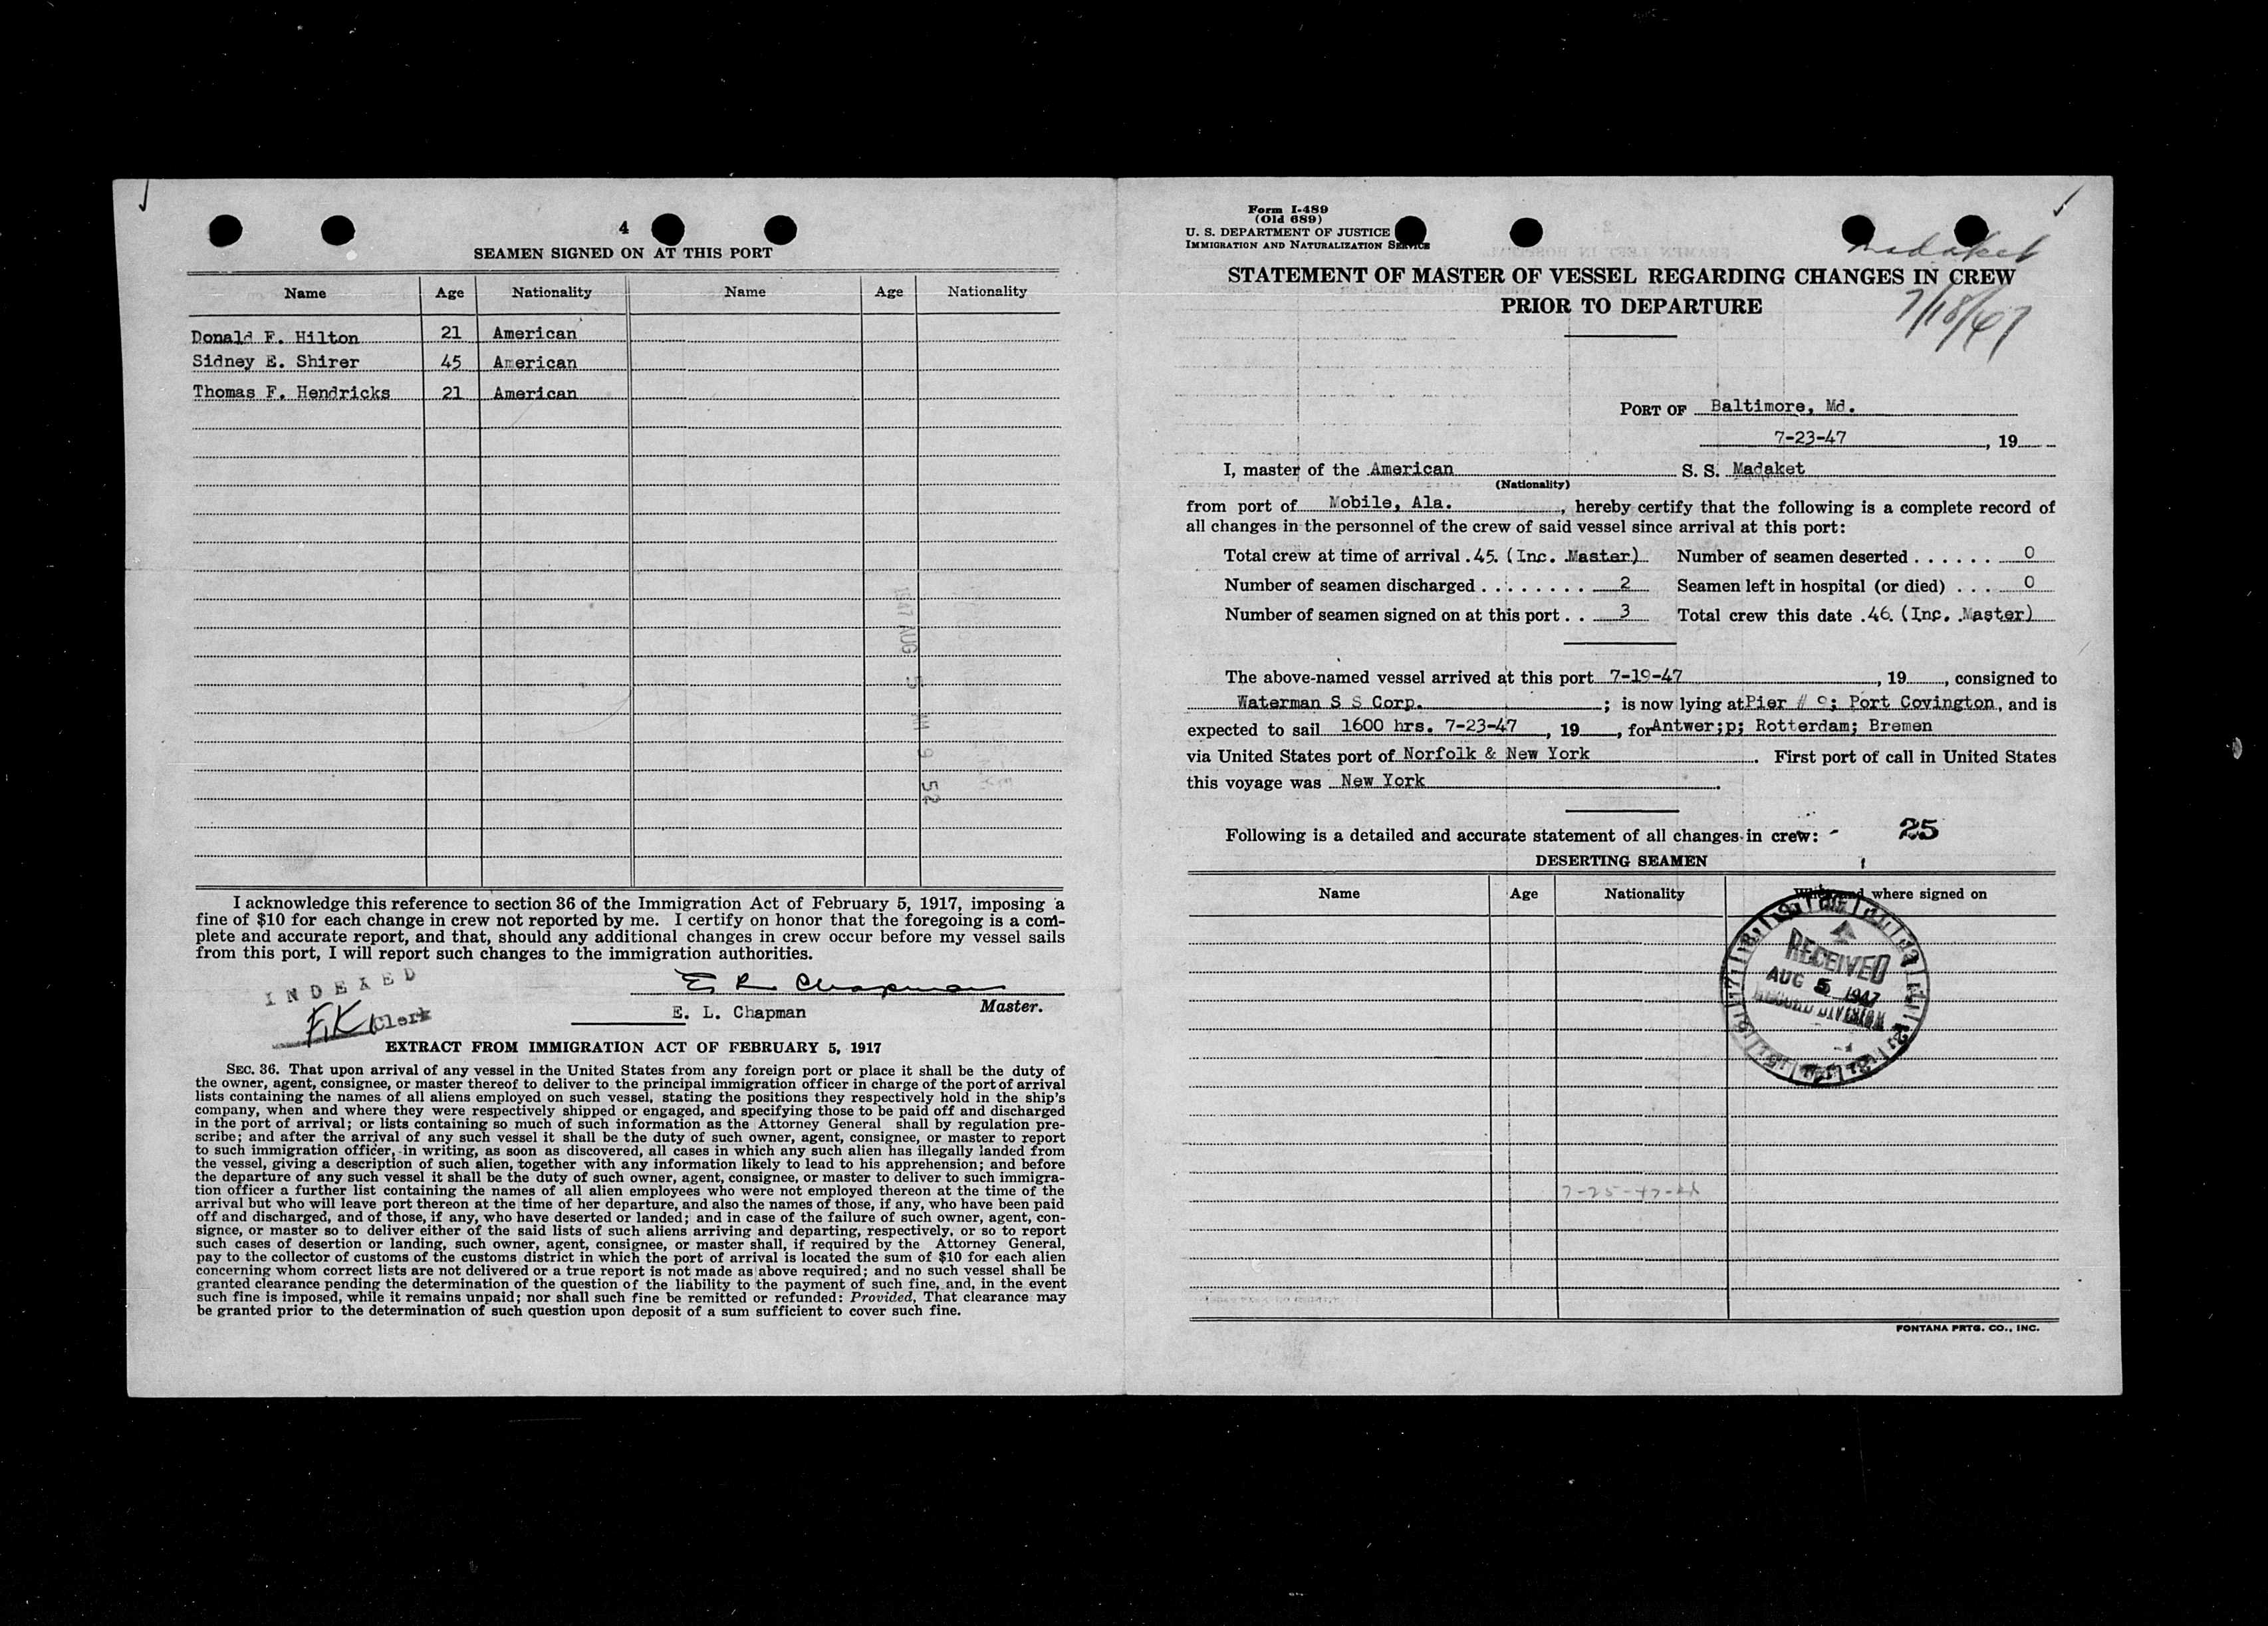 4
SEAMEN SIGNED ON AT THIS PORT
Name Age Nationality Name Age Nationality
Donald F. Hilton 21 American
Sidney E. Shirer 45 American
Thomas F. Hendricks 21 American
1947 AUG 5 AM 9 52
I acknowledge this reference to section 36 of the Immigration Act of February 5, 1917, imposing a
fine of $10 for each change in crew not reported by me. I certify on honor that the foregoing is a com-
plete and accurate report, and that, should any additional changes in crew occur before my vessel sails
from this port, I will report such changes to the immigration authorities.
INDEXED
F.K. Clerk
E L Chapman
E. L. Chapman Master.
EXTRACT FROM IMMIGRATION ACT OF FEBRUARY 5, 1917
SEC. 36. That upon arrival of any vessel in the United States from any foreign port or place it shall be the duty of
the owner, agent, consignee, or master thereof to deliver to the principal immigration officer in charge of the port of arrival
lists containing the names of all aliens employed on such vessel, stating the positions they respectively hold in the ship's
company, when and where they were respectively shipped or engaged, and specifying those to be paid off and discharged
in the port of arrival; or lists containing so much of such information as the Attorney General shall by regulation pre-
scribe; and after the arrival of any such vessel it shall be the duty of such owner, agent, consignee, or master to report
to such immigration officer, in writing, as soon as discovered, all cases in which any such alien has illegally landed from
the vessel, giving a description of such alien, together with any information likely to lead to his apprehension; and before
the departure of any such vessel it shall be the duty of such owner, agent, consignee, or master to deliver to such immigra-
tion officer a further list containing the names of all alien employees who were not employed thereon at the time of the
arrival but who will leave port thereon at the time of her departure, and also the names of those, if any, who have been paid
off and discharged, and of those, if any, who have deserted or landed; and in case of the failure of such owner, agent, con-
signee, or master so to deliver either of the said lists of such aliens arriving and departing, respectively, or so to report
such cases of desertion or landing, such owner, agent, consignee, or master shall, if required by the Attorney General,
pay to the collector of customs of the customs district in which the port of arrival is located the sum of $10 for each alien
concerning whom correct lists are not delivered or a true report is not made as above required; and no such vessel shall be
granted clearance pending the determination of the question of the liability to the payment of such fine, and, in the event
such fine is imposed, while it remains unpaid; nor shall such fine be remitted or refunded: Provided, That clearance may
be granted prior to the determination of such question upon deposit of a sum sufficient to cover such fine.
Form I-489
(Old 689)
U. S. DEPARTMENT OF JUSTICE
IMMIGRATION AND NATURALIZATION SERVICE
Madaket
7/18/47
STATEMENT OF MASTER OF VESSEL REGARDING CHANGES IN CREW
PRIOR TO DEPARTURE
PORT OF Baltimore, Md.
7-23-47, 19
I, master of the American S. S. Madaket
(Nationality)
from port of Mobile, Ala., hereby certify that the following is a complete record of
all changes in the personnel of the crew of said vessel since arrival at this port:
Total crew at time of arrival 45. (Inc. Master) Number of seamen deserted 0
Number of seamen discharged 2 Seamen left in hospital (or died) 0
Number of seamen signed on at this port 3 Total crew this date 46. (Inc. Master)
The above-named vessel arrived at this port 7-19-47, 19, consigned to
Waterman S S Corp.; is now lying at Pier # 9; Port Covington, and is
expected to sail 1600 hrs. 7-23-47, 19, for Antwer;p; Rotterdam; Bremen
via United States port of Norfolk & New York. First port of call in United States
this voyage was New York.
Following is a detailed and accurate statement of all changes in crew: 25
DESERTING SEAMEN
Name Age Nationality When and where signed on
RECEIVED
AUG 5 1947
RECORD DIVISION
FONTANA PRTG. CO., INC.